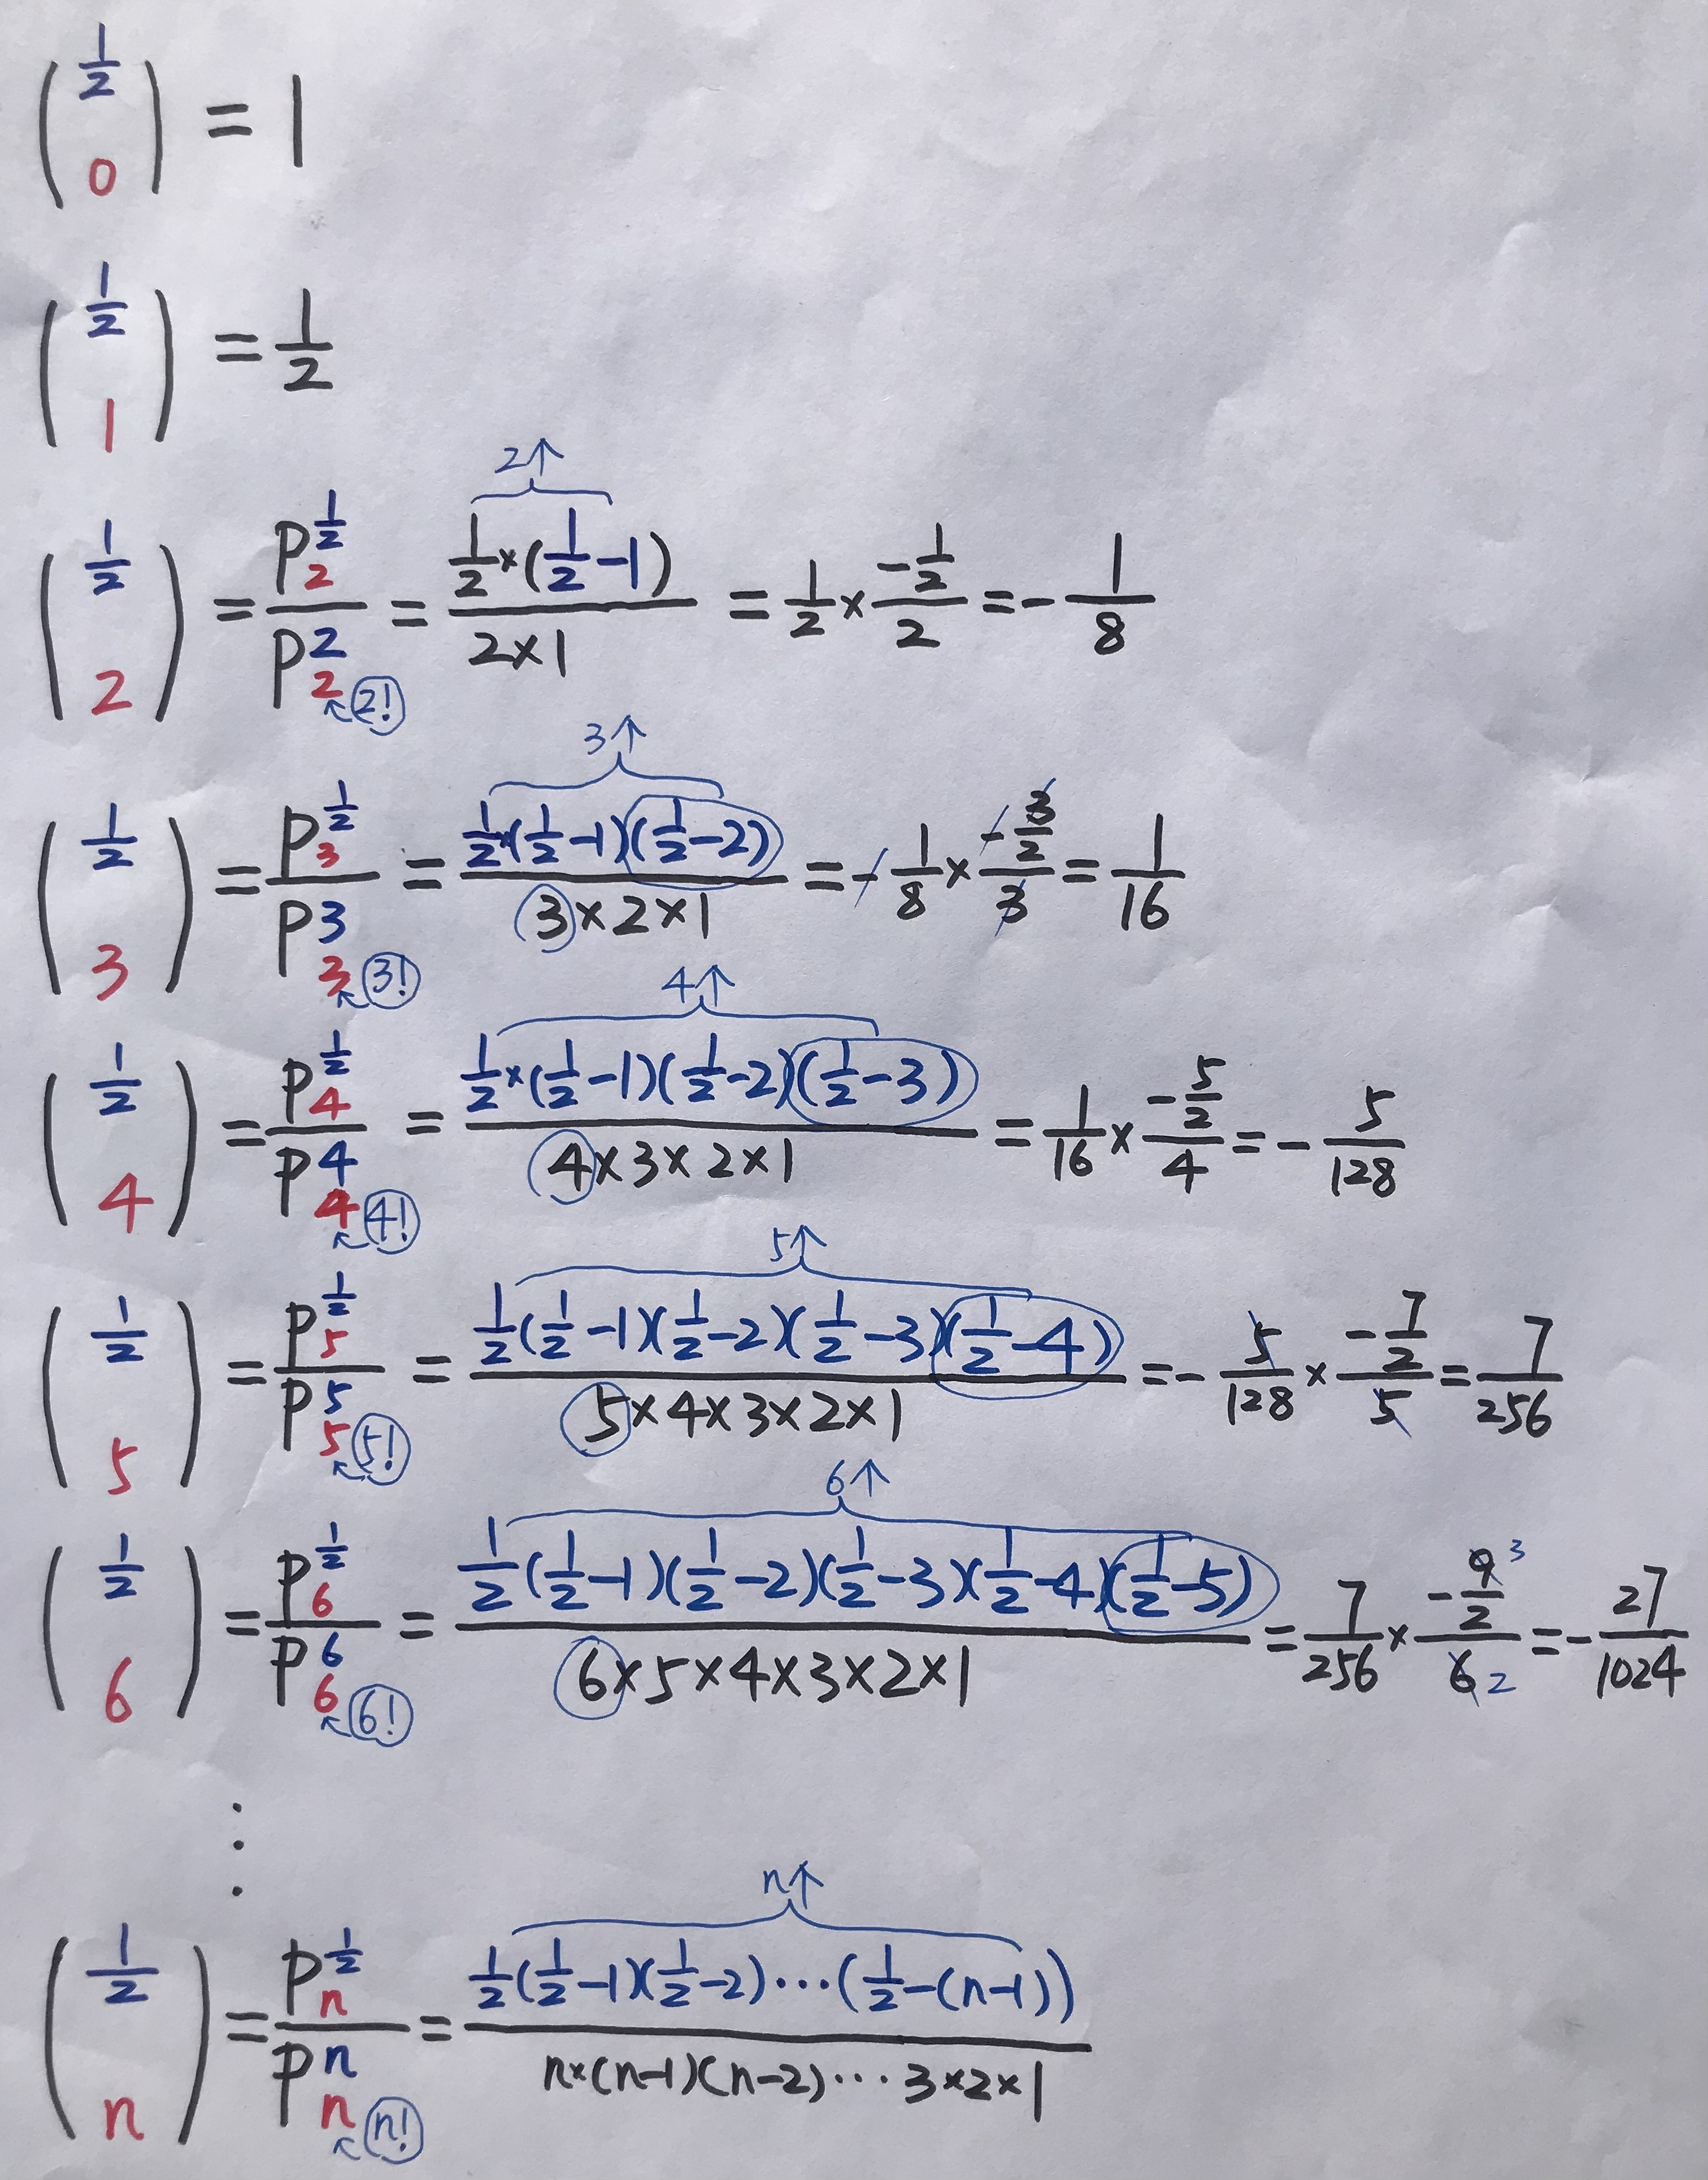 (1/2 0) = 1
(1/2 1) = 1/2
2↑
(1/2 2) = P^1/2_2 / P^2_2 = 1/2×(1/2-1) / 2×1 = 1/2 × -1/2 / 2 = -1/8
2!
3↑
(1/2 3) = P^1/2_3 / P^3_3 = 1/2×(1/2-1)(1/2-2) / 3×2×1 = -1/8 × -3/2 / 3 = 1/16
3!
4↑
(1/2 4) = P^1/2_4 / P^4_4 = 1/2×(1/2-1)(1/2-2)(1/2-3) / 4×3×2×1 = 1/16 × -5/2 / 4 = -5/128
4!
5↑
(1/2 5) = P^1/2_5 / P^5_5 = 1/2(1/2-1)(1/2-2)(1/2-3)(1/2-4) / 5×4×3×2×1 = -5/128 × -7/2 / 5 = 7/256
5!
6↑
(1/2 6) = P^1/2_6 / P^6_6 = 1/2(1/2-1)(1/2-2)(1/2-3)(1/2-4)(1/2-5) / 6×5×4×3×2×1 = 7/256 × -9/2 / 6 = -27/1024
3
2
6!
⋮
n↑
(1/2 n) = P^1/2_n / P^n_n = 1/2(1/2-1)(1/2-2)···(1/2-(n-1)) / n×(n-1)(n-2)···3×2×1
n!